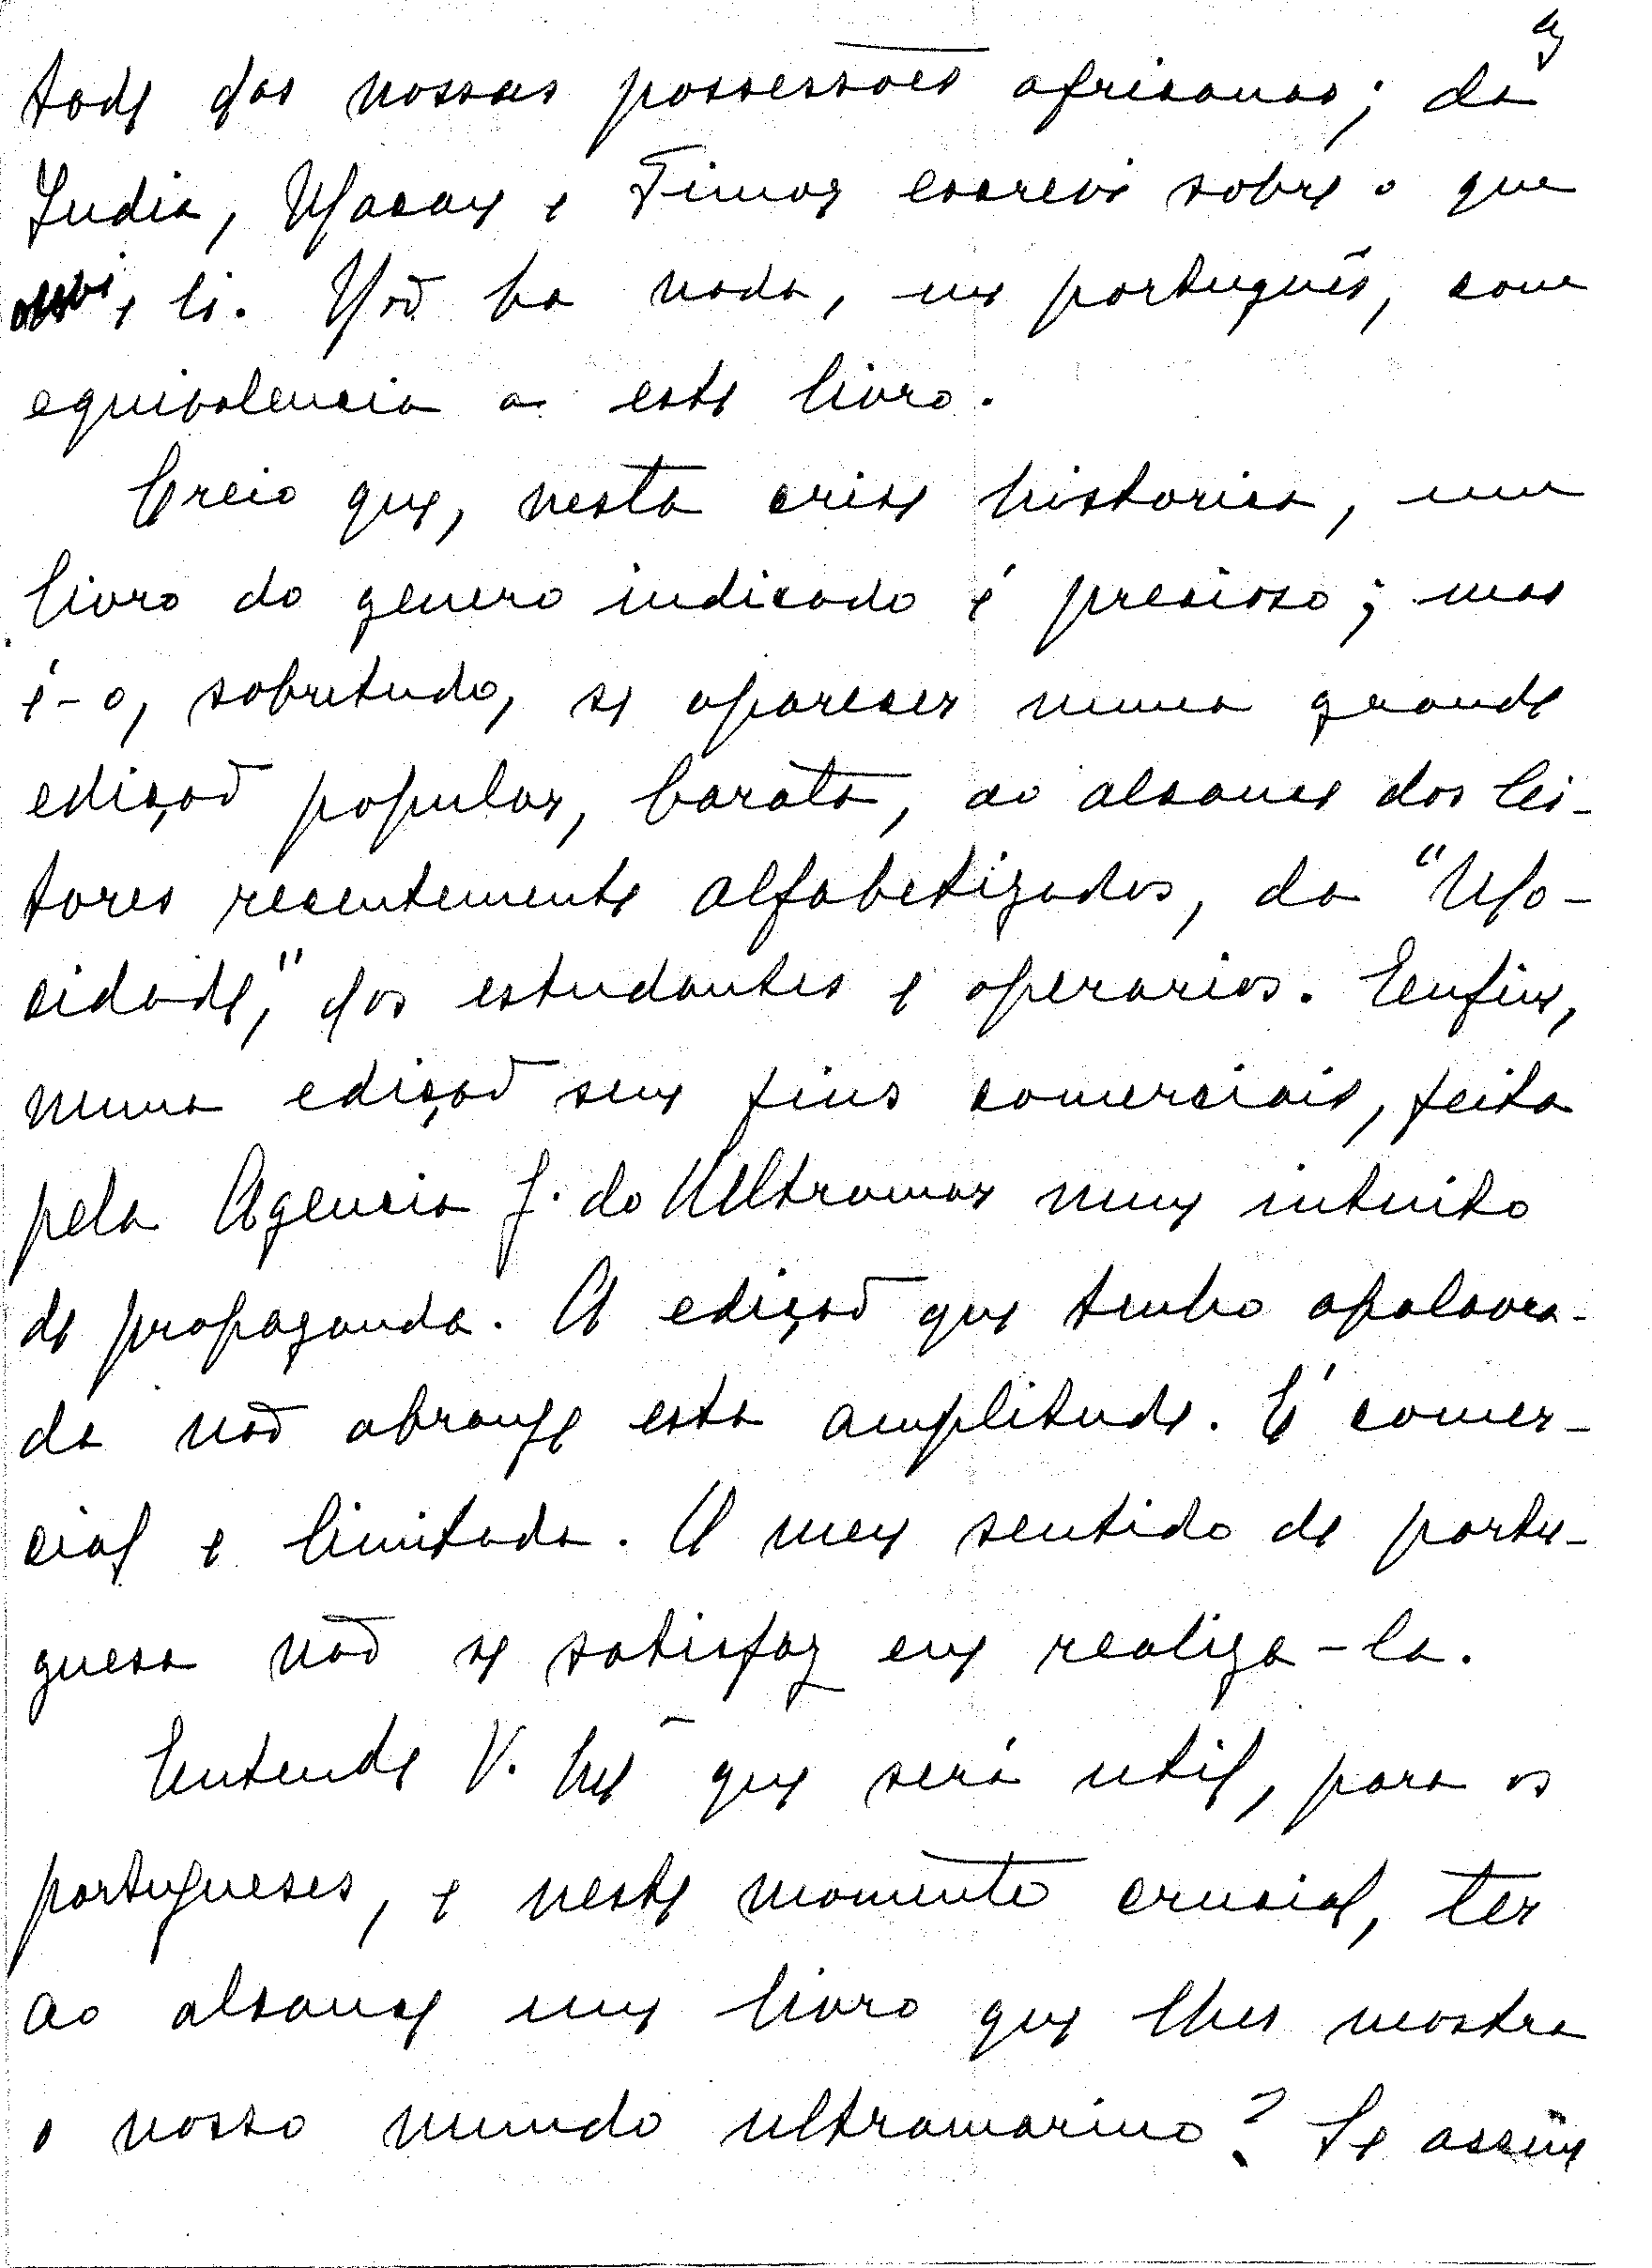 tode das nossas possessões africanas; da
India, Macau e Timor escrevi sobre o que
ouvi e li. Não ha nada, em português, com
equivalencia a este livro.
Creio que, nesta crise historica, um
livro do genero indicado é precioso; mas
é-o, sobretudo, se aparecer numa grande
edição popular, barata, ao alcance dos lei-
tores recentemente alfabetizados, da "Mo-
cidade," dos estudantes e operarios. Enfim,
numa edição sem fins comerciais, feita
pela Agencia G. do Ultramar num intuito
de propaganda. A edição que tenho apalavra-
da não abrange esta amplitude. É comer-
cial e limitada. O meu sentido de portu-
guesa não se satisfaz em realiza-la.
Entende V. Exª que será util, para os
portugueses, e neste momento crucial, ter
ao alcance um livro que lhes mostra
o nosso mundo ultramarino? Se assim